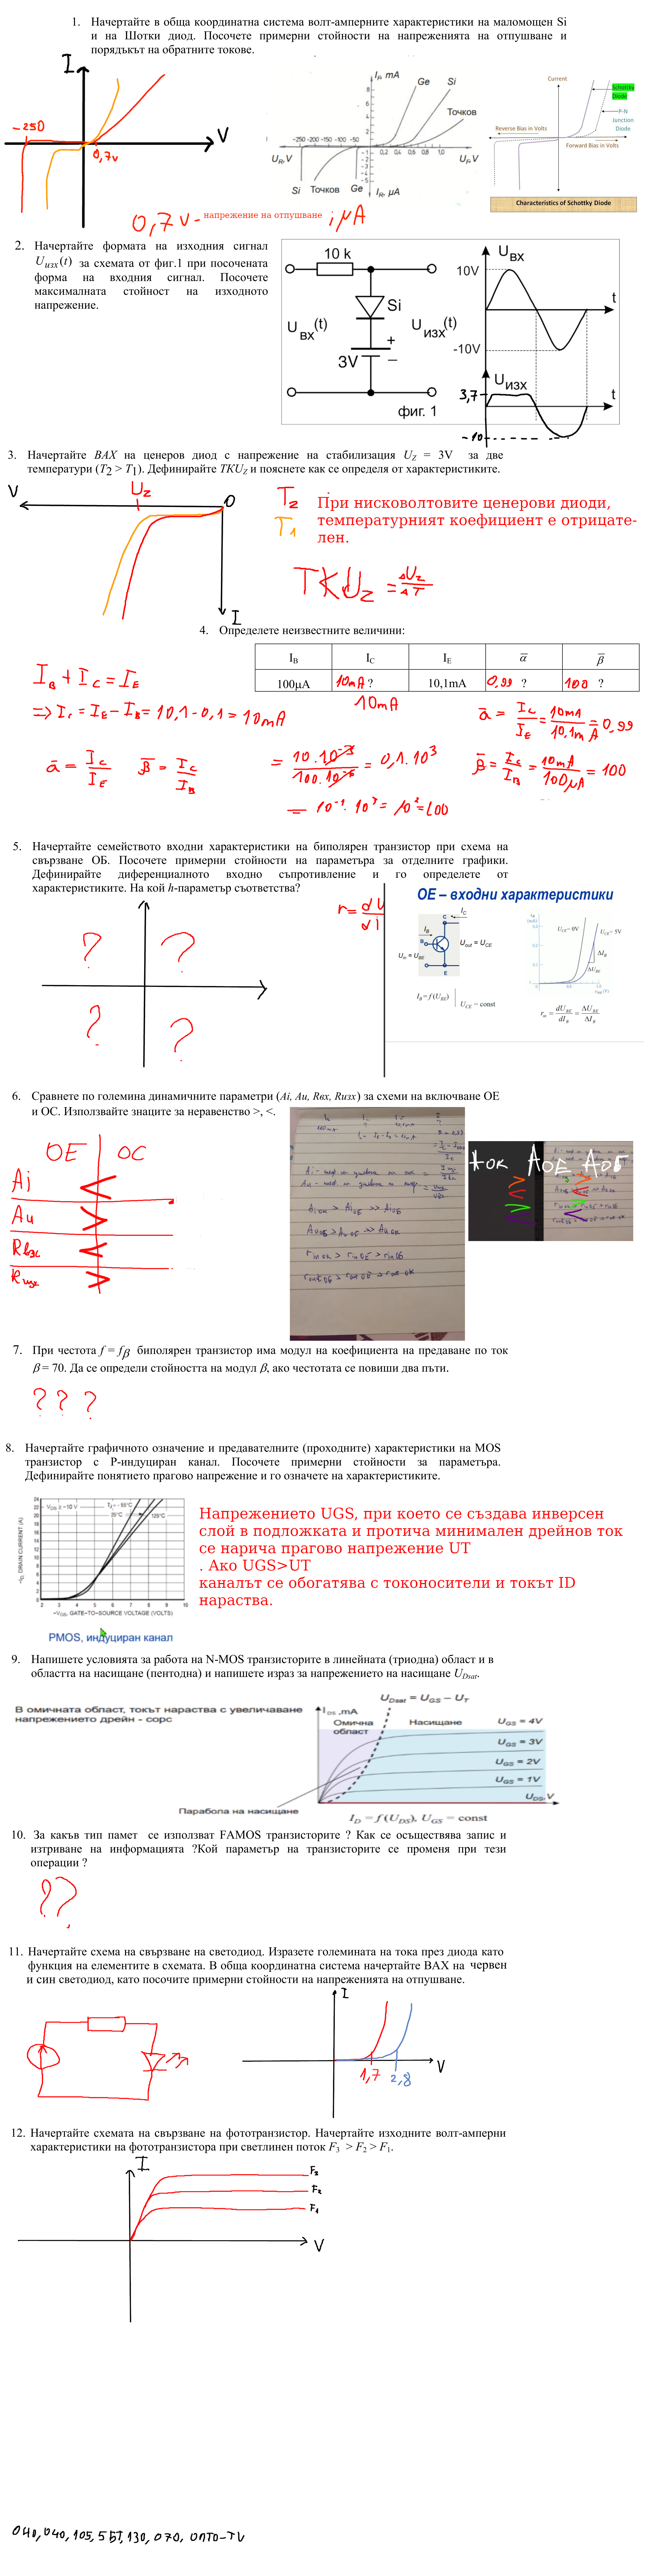 1. Начертайте в обща координатна система волт-амперните характеристики на маломощен Si
и на Шотки диод. Посочете примерни стойности на напреженията на отпушване и
порядъкът на обратните токове.
I
V
-250
0,7v
I_F, mA
Ge Si
Точков
-250 -200 -150 -100 -50
0,2 0,4 0,6 0,8 1,0
U_R, V
U_F, V
Si Точков Ge I_R, μA
Current
Schottky
Diode
P-N
Junction
Diode
Reverse Bias in Volts
Forward Bias in Volts
Characteristics of Schottky Diode
0,7v - напрежение на отпушване ; μA
2. Начертайте формата на изходния сигнал
Uизх(t) за схемата от фиг.1 при посочената
форма на входния сигнал. Посочете
максималната стойност на изходното
напрежение.
10 k
Si
U вх (t)
U изх (t)
3V
+
−
фиг. 1
U вх
10V
t
-10V
U изх
3,7
t
-10
3. Начертайте ВАХ на ценеров диод с напрежение на стабилизация U_Z = 3V за две
температури (T2 > T1). Дефинирайте TKU_Z и пояснете как се определя от характеристиките.
V
U_Z
O
I
T2
T1
При нисковолтовите ценерови диоди,
температурният коефициент е отрицате-
лен.
TKU_Z = ΔU_Z / ΔT
4. Определете неизвестните величини:
I_B I_C I_E α̅ β̅
100μA 10mA ? 10,1mA 0,99 ? 100 ?
10mA
I_B + I_C = I_E
=> I_C = I_E - I_B = 10,1 - 0,1 = 10mA
ā = I_C / I_E β̅ = I_C / I_B
= 10.10⁻³ / 100.10⁻⁶ = 0,1.10³
= 10⁻¹. 10³ = 10² = 100
ā = I_C / I_E = 10mA / 10,1mA = 0,99
β̅ = I_C / I_B = 10mA / 100μA = 100
5. Начертайте семейството входни характеристики на биполярен транзистор при схема на
свързване ОБ. Посочете примерни стойности на параметъра за отделните графики.
Дефинирайте диференциалното входно съпротивление и го определете от
характеристиките. На кой h-параметър съответства?
? ?
? ?
r = dU / dI
ОЕ – входни характеристики
I_C
C
I_B
B
U_out = U_CE
U_in = U_BE
E
I_B = f(U_BE) | U_CE = const
U_CE = 0V U_CE = 5V
ΔI_B
ΔU_BE
r_in = dU_BE / dI_B = ΔU_BE / ΔI_B
6. Сравнете по големина динамичните параметри (Ai, Au, Rвх, Rизх) за схеми на включване ОЕ
и ОС. Използвайте знаците за неравенство >, <.
OE OC
Ai <
Au >
Rвх <
Rизх >
A_iOK > A_iOE >> A_iOБ
A_uOБ > A_uOE >> A_uOK
r_in OK > r_in OE > r_in OБ
r_out OБ > r_out OE > r_out OK
Aок АОЕ АОБ
7. При честота f = fβ биполярен транзистор има модул на коефициента на предаване по ток
β = 70. Да се определи стойността на модул β, ако честотата се повиши два пъти.
? ? ?
8. Начертайте графичното означение и предавателните (проходните) характеристики на MOS
транзистор с P-индуциран канал. Посочете примерни стойности за параметъра.
Дефинирайте понятието прагово напрежение и го означете на характеристиките.
V_DS ≥ -10 V
T_J = -55°C
25°C
125°C
-I_D, DRAIN CURRENT (A)
24 22 20 18 16 14 12 10 8 6 4 2 0
2 3 4 5 6 7 8 9 10
-V_GS, GATE-TO-SOURCE VOLTAGE (VOLTS)
PMOS, индуциран канал
Напрежението UGS, при което се създава инверсен
слой в подложката и протича минимален дрейнов ток
се нарича прагово напрежение UT
. Ако UGS>UT
каналът се обогатява с токоносители и токът ID
нараства.
9. Напишете условията за работа на N-MOS транзисторите в линейната (триодна) област и в
областта на насищане (пентодна) и напишете израз за напрежението на насищане U_Dsat.
В омичната област, токът нараства с увеличаване
напрежението дрейн - сорс
U_Dsat = U_GS − U_T
I_DS, mA
Омична
област
Насищане
U_GS = 4V
U_GS = 3V
U_GS = 2V
U_GS = 1V
U_DS, V
Парабола на насищане
I_D = f(U_DS), U_GS = const
10. За какъв тип памет се използват FAMOS транзисторите ? Как се осъществява запис и
изтриване на информацията ?Кой параметър на транзисторите се променя при тези
операции ?
??
11. Начертайте схема на свързване на светодиод. Изразете големината на тока през диода като
функция на елементите в схемата. В обща координатна система начертайте ВАХ на червен
и син светодиод, като посочите примерни стойности на напреженията на отпушване.
I
V
1,7 2,8
12. Начертайте схемата на свързване на фототранзистор. Начертайте изходните волт-амперни
характеристики на фототранзистора при светлинен поток F3 > F2 > F1.
I
F3
F2
F1
V
040, 040, 105, 55T, 130, 070, ОПТО-TV